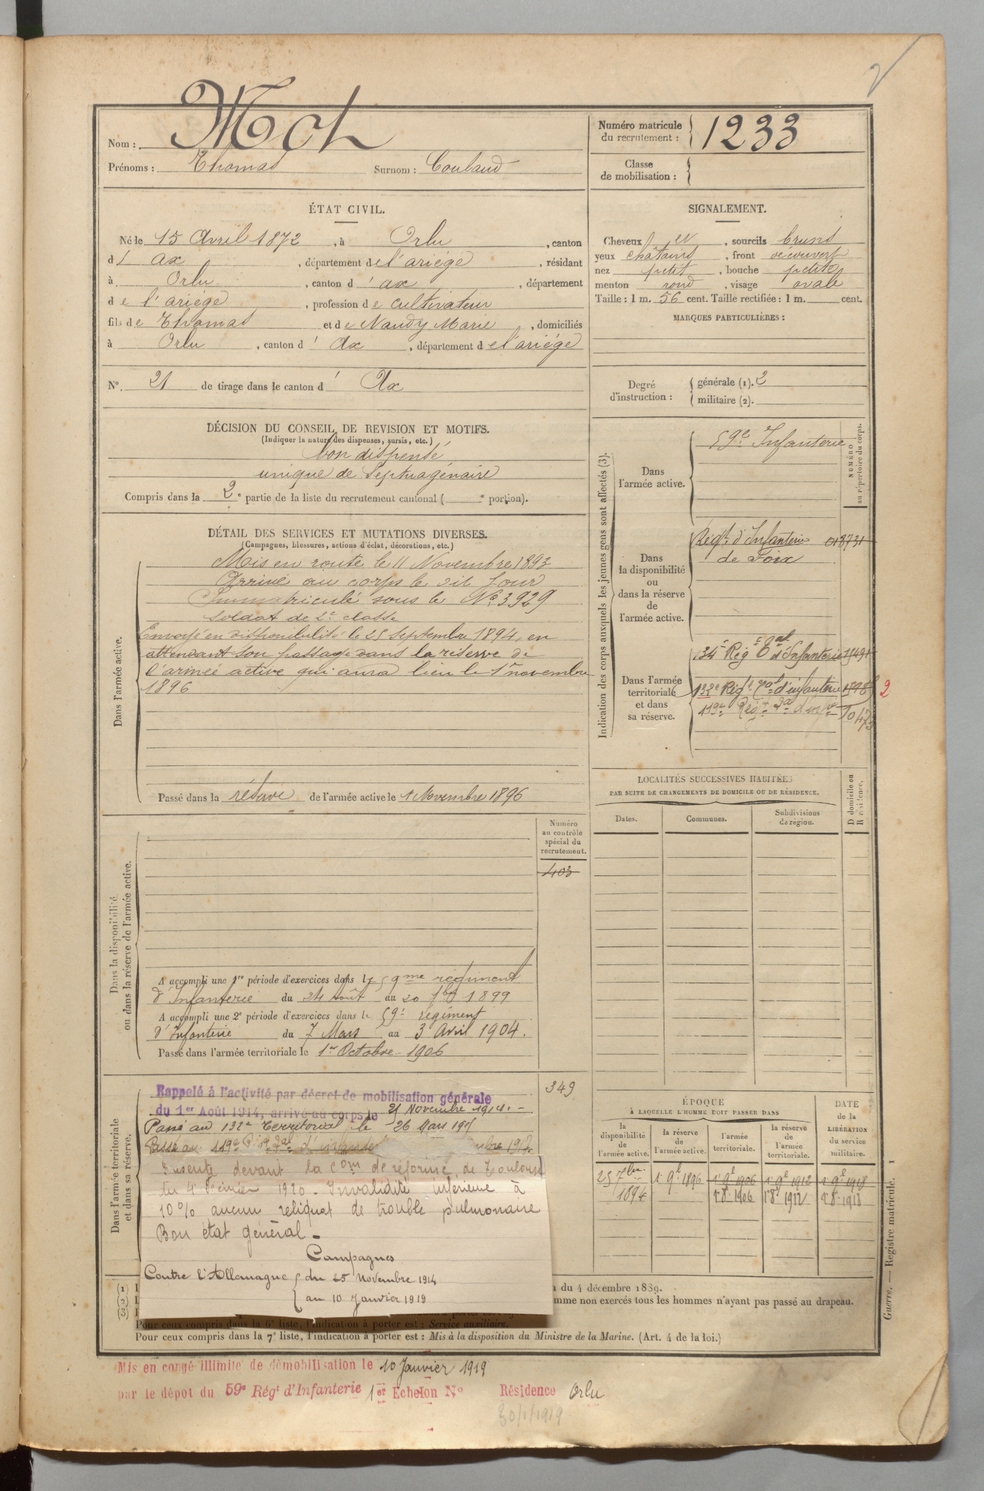 Nom : Moch
Prénoms : Thomas Surnom : Coulaud
Numéro matricule du recrutement : 1233
Classe de mobilisation :
ÉTAT CIVIL.
Né le 15 Avril 1872, à Orlu, canton
d' ax, département de l'ariège, résidant
à Orlu, canton d' ax, département
de l'ariège, profession de cultivateur
fils de Thomas et de Naudy Marie, domiciliés
à Orlu, canton d' Ax, département de l'ariège
N° 21 de tirage dans le canton d' Ax
SIGNALEMENT.
Cheveux et, sourcils bruns
yeux châtains, front découvert
nez petit, bouche petite
menton rond, visage ovale
Taille : 1 m. 56 cent. Taille rectifiée : 1 m. cent.
MARQUES PARTICULIÈRES :
Degré d'instruction : générale (1). 2
militaire (2).
DÉCISION DU CONSEIL DE REVISION ET MOTIFS.
(Indiquer la nature des dispenses, sursis, etc.)
bon dispensé
unique de Septuagénaire
Compris dans la 2e partie de la liste du recrutement cantonal ( e portion).
DÉTAIL DES SERVICES ET MUTATIONS DIVERSES.
(Campagnes, blessures, actions d'éclat, décorations, etc.)
Dans l'armée active.
Mis en route le 11 Novembre 1893
Arrivé au corps le dit jour
Immatriculé sous le No 3929
soldat de 2e classe
Envoyé en disponibilité le 25 Septembre 1894, en
attendant son passage dans la réserve de
l'armée active qui aura lieu le 1er novembre
1896
Passé dans la réserve de l'armée active le 1 Novembre 1896
Indication des corps auxquels les jeunes gens sont affectés (3).
NUMÉRO au répertoire du corps.
Dans l'armée active.
59e Infanterie
Dans la disponibilité ou dans la réserve de l'armée active.
Régt d'Infanterie
de Foix
Dans l'armée territoriale et dans sa réserve.
134e Rég t d'Infanterie
132e Régt d'infanterie
2
LOCALITÉS SUCCESSIVES HABITÉES
PAR SUITE DE CHANGEMENTS DE DOMICILE OU DE RÉSIDENCE.
Dates. Communes. Subdivisions de région. D domicile ou R résidence.
Numéro au contrôle spécial du recrutement.
403
Dans la disponibilité ou dans la réserve de l'armée active.
A accompli une 1re période d'exercices dans le 59me régiment
d'Infanterie du 24 août au 20 7bre 1899
A accompli une 2e période d'exercices dans le 59e régiment
d'Infanterie du 7 Mars au 3 Avril 1904.
Passé dans l'armée territoriale le 1er Octobre 1906
349
Dans l'armée territoriale et dans sa réserve.
Rappelé à l'activité par décret de mobilisation générale
du 1er Août 1914, arrivé au corps le 21 Novembre 1914.
Passé au 132e Territorial le 26 Mars
Présenté devant la Com de réforme de Toulouse
du 4 février 1920. Invalidité inférieure à
10% aucun reliquat de trouble pulmonaire
Bon état général.
Campagnes
Contre l'Allemagne { du 25 Novembre 1914
au 10 Janvier 1919
ÉPOQUE
À LAQUELLE L'HOMME DOIT PASSER DANS
DATE de la LIBÉRATION du service militaire.
la disponibilité de l'armée active. la réserve de l'armée active. l'armée territoriale. la réserve de l'armée territoriale.
25 7bre 1894 1 9e 1896 1 9e 1906 1 9e 1912 1 9e 1918
1 8e 1906 1 8e 1912 1 8e 1918
(1)
(2)
(3)
du 4 décembre 1889.
mme non exercés tous les hommes n'ayant pas passé au drapeau.
Pour ceux compris dans la 6e liste, l'indication à porter est : Service auxiliaire.
Pour ceux compris dans la 7e liste, l'indication à porter est : Mis à la disposition du Ministre de la Marine. (Art. 4 de la loi.)
Guerre. — Registre matricule. 1
Mis en congé illimité de démobilisation le 10 Janvier 1919
par le dépôt du 59e Régt d'Infanterie 1er Echelon No Résidence Orlu
30/1/1919